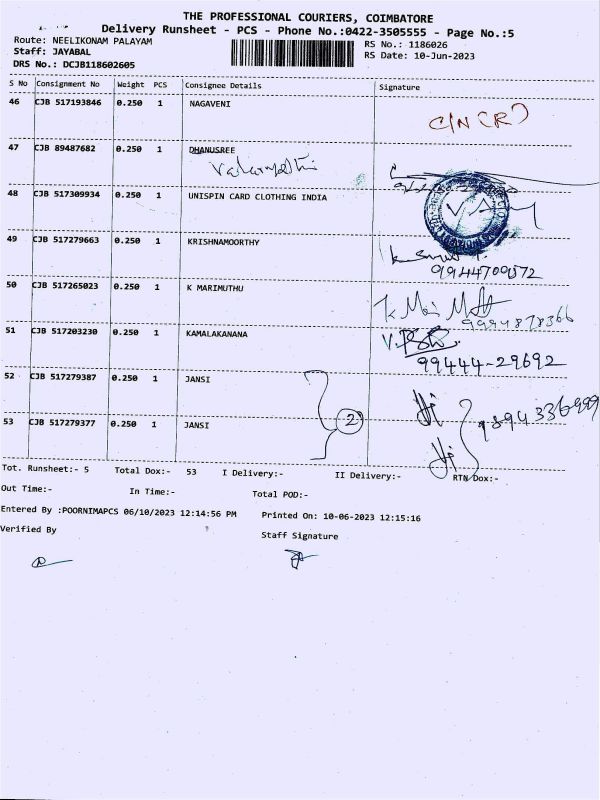 THE PROFESSIONAL COURIERS, COIMBATORE
Delivery Runsheet - PCS - Phone No.:0422-3505555 - Page No.:5
Route: NEELIKONAM PALAYAM
RS No.: 1186026
Staff: JAYABAL
RS Date: 10-Jun-2023
DRS No.: DCJB118602605
S No Consignment No Weight PCS Consignee Details Signature
46 CJB 517193846 0.250 1 NAGAVENI
C/N (R)
47 CJB 89487682 0.250 1 DHANUSREE
48 CJB 517309934 0.250 1 UNISPIN CARD CLOTHING INDIA
49 CJB 517279663 0.250 1 KRISHNAMOORTHY
50 CJB 517265023 0.250 1 K MARIMUTHU
51 CJB 517203230 0.250 1 KAMALAKANANA
99444-29692
52 CJB 517279387 0.250 1 JANSI
2
53 CJB 517279377 0.250 1 JANSI
Tot. Runsheet:- 5 Total Dox:- 53 I Delivery:- II Delivery:- RTN Dox:-
Out Time:- In Time:- Total POD:-
Entered By :POORNIMAPCS 06/10/2023 12:14:56 PM Printed On: 10-06-2023 12:15:16
Verified By Staff Signature